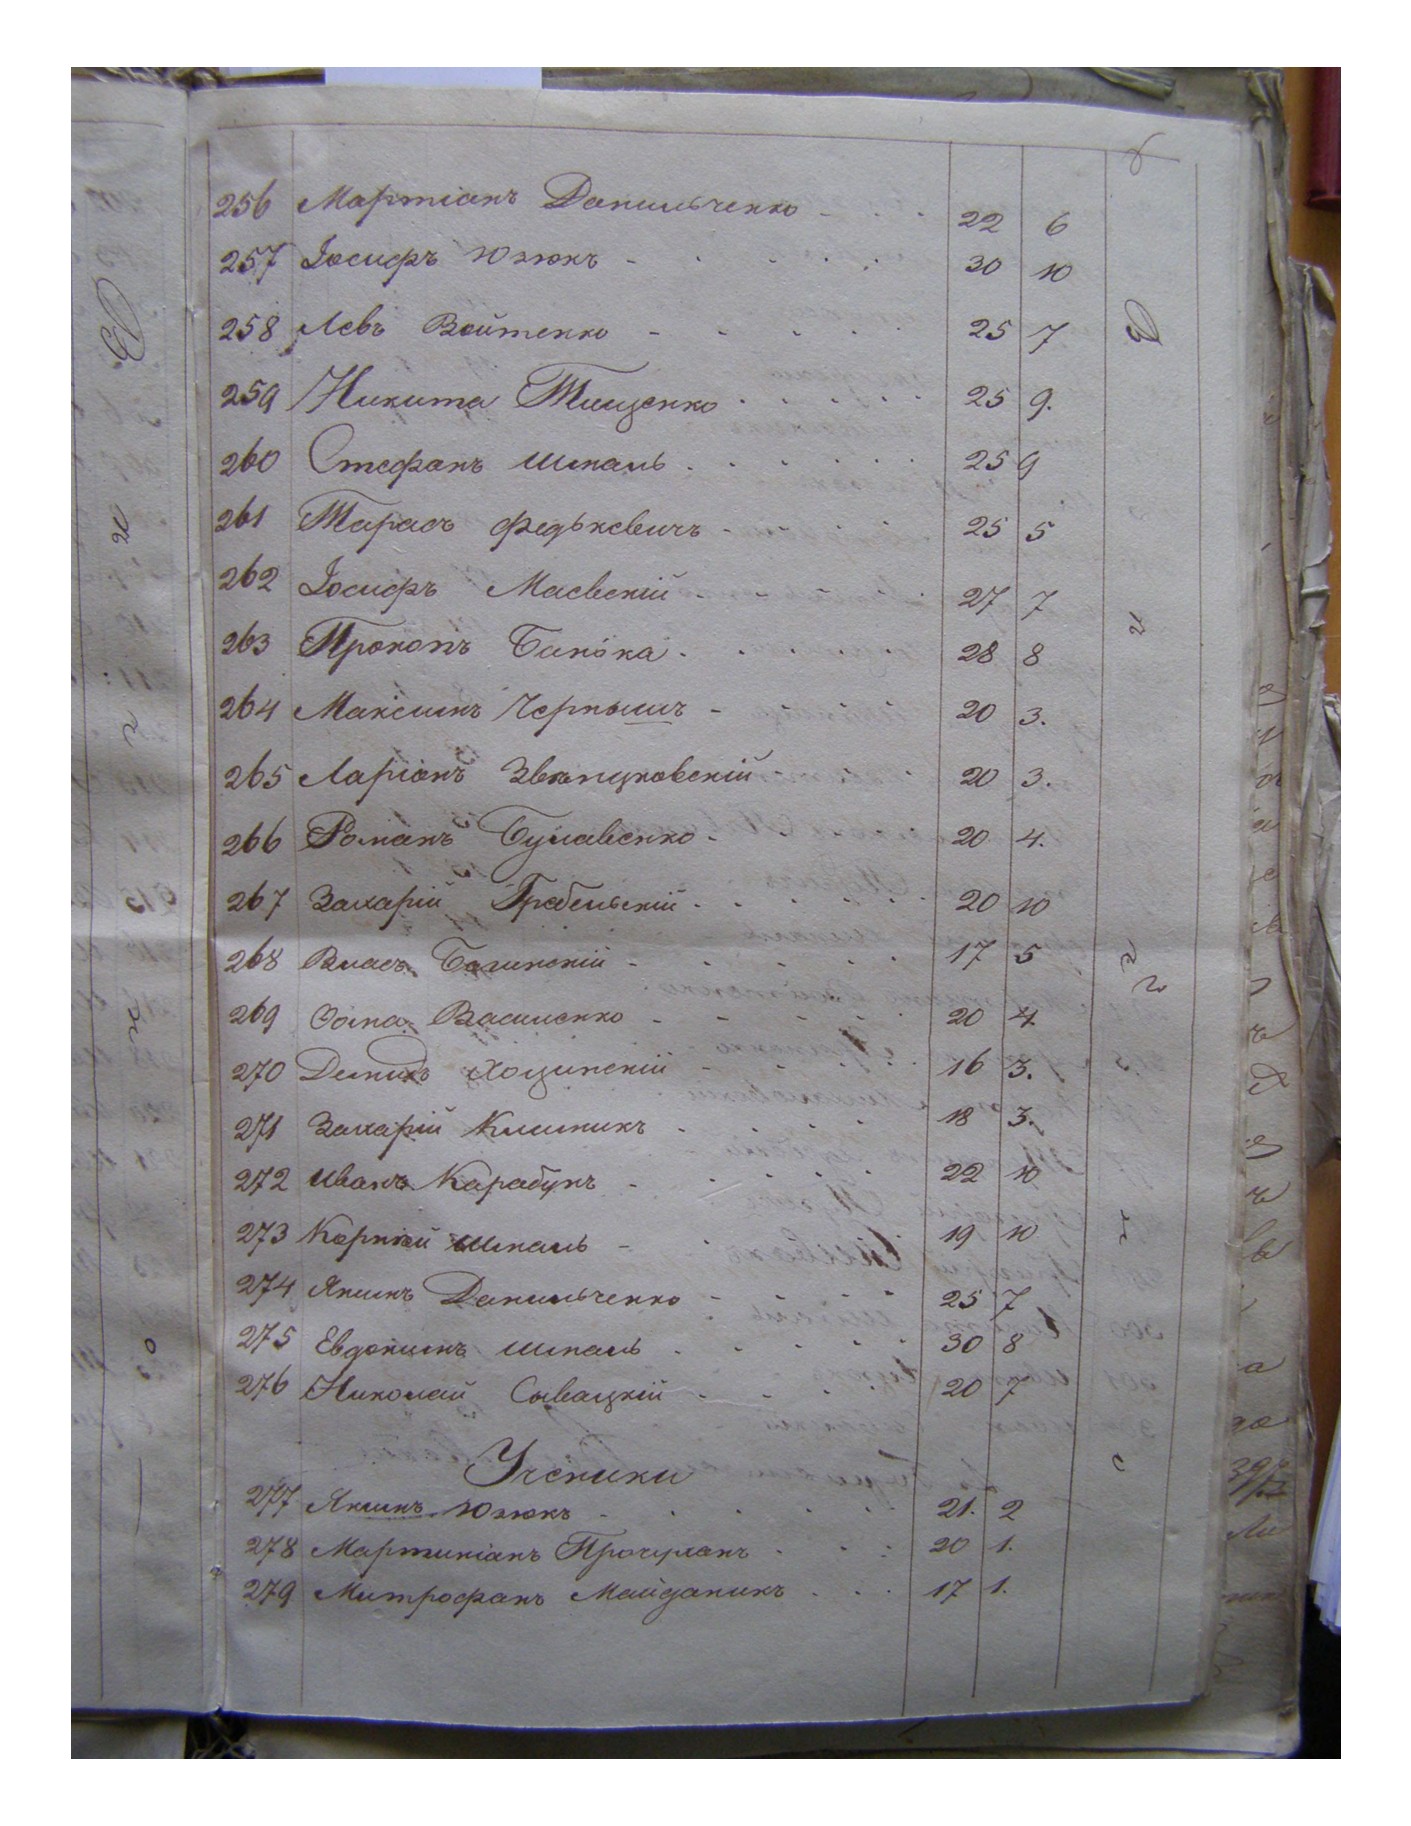 256 Мартіанъ Данильченко - . . 22 6
257 Іосифъ Юзюкъ - . - . . 30 10
258 Левъ Войтенко - - - . . 25 7
259 Никита Тищенко . . . . . . 25 9.
260 Стефанъ Шкаль . . . . . . 25 9
261 Тарасъ Федькевичъ - . 25 5
262 Іосифъ Маевскій . - - . . 27 7
263 Прокопъ . . . . . 28 8
264 Максимъ Чернышъ - 20 3.
265 Ларіонъ 20 3.
266 Романъ Булавенко - . . . 20 4.
267 Захарій Грабельскій . . . . . . 20 10
268 Власъ - - - . . 17 5
269 Ѳома Василенко - - - . . 20 4.
270 Демидъ Хощинскій - - . . . 16 3.
271 Захарій Климикъ . . . . . 18 3.
272 Иванъ Карабунъ - . . . . 22 10
273 Корнѣй Шкаль - . 19 10
274 Якимъ Данильченко - . . . 25 7
275 Евдокимъ Шкаль . . - . . 30 8
276 Николай Сывацкій - . . . 20 7
Ученики
277 Якимъ Юзюкъ - . . . . . 21. 2
278 Мартиніанъ . . : 20 1.
279 Митрофанъ Майданикъ . . . 17 1.